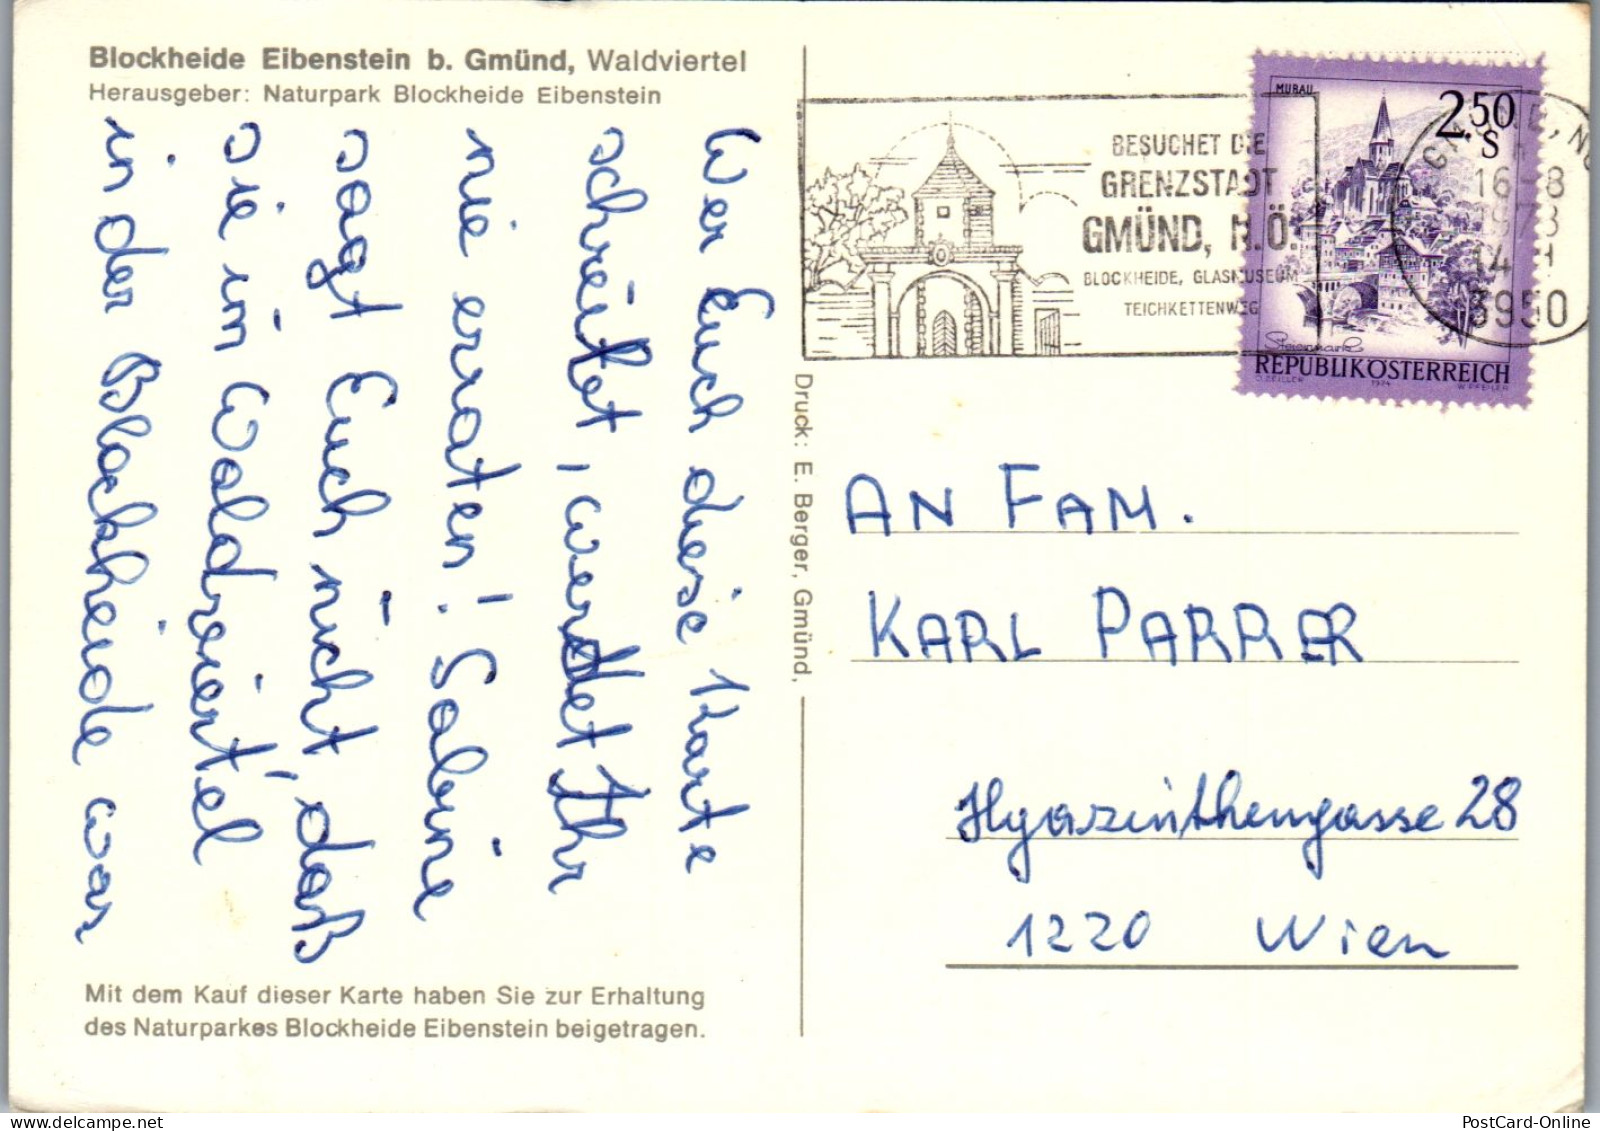 Blockheide Eibenstein b. Gmünd, Waldviertel
Herausgeber: Naturpark Blockheide Eibenstein
Wer Euch diese Karte
schreibt, werdet Ihr
nie erraten! Sabine
sagt Euch nicht, daß
sie im Waldviertel
in der Blockheide war
Mit dem Kauf dieser Karte haben Sie zur Erhaltung
des Naturparkes Blockheide Eibenstein beigetragen.
Druck: E. Berger, Gmünd,
BESUCHET DIE
GRENZSTADT
GMÜND, N.Ö.
BLOCKHEIDE, GLASMUSEUM
TEICHKETTENWEG
MURAU
2.50
S
Steiermark
REPUBLIK ÖSTERREICH
O. ZEILLER 1974 W. PFEILER
GMÜND, NÖ
16-8
1978
14
3950
AN FAM.
KARL PARRER
Hyazinthengasse 28
1220 Wien
PostCard-Online